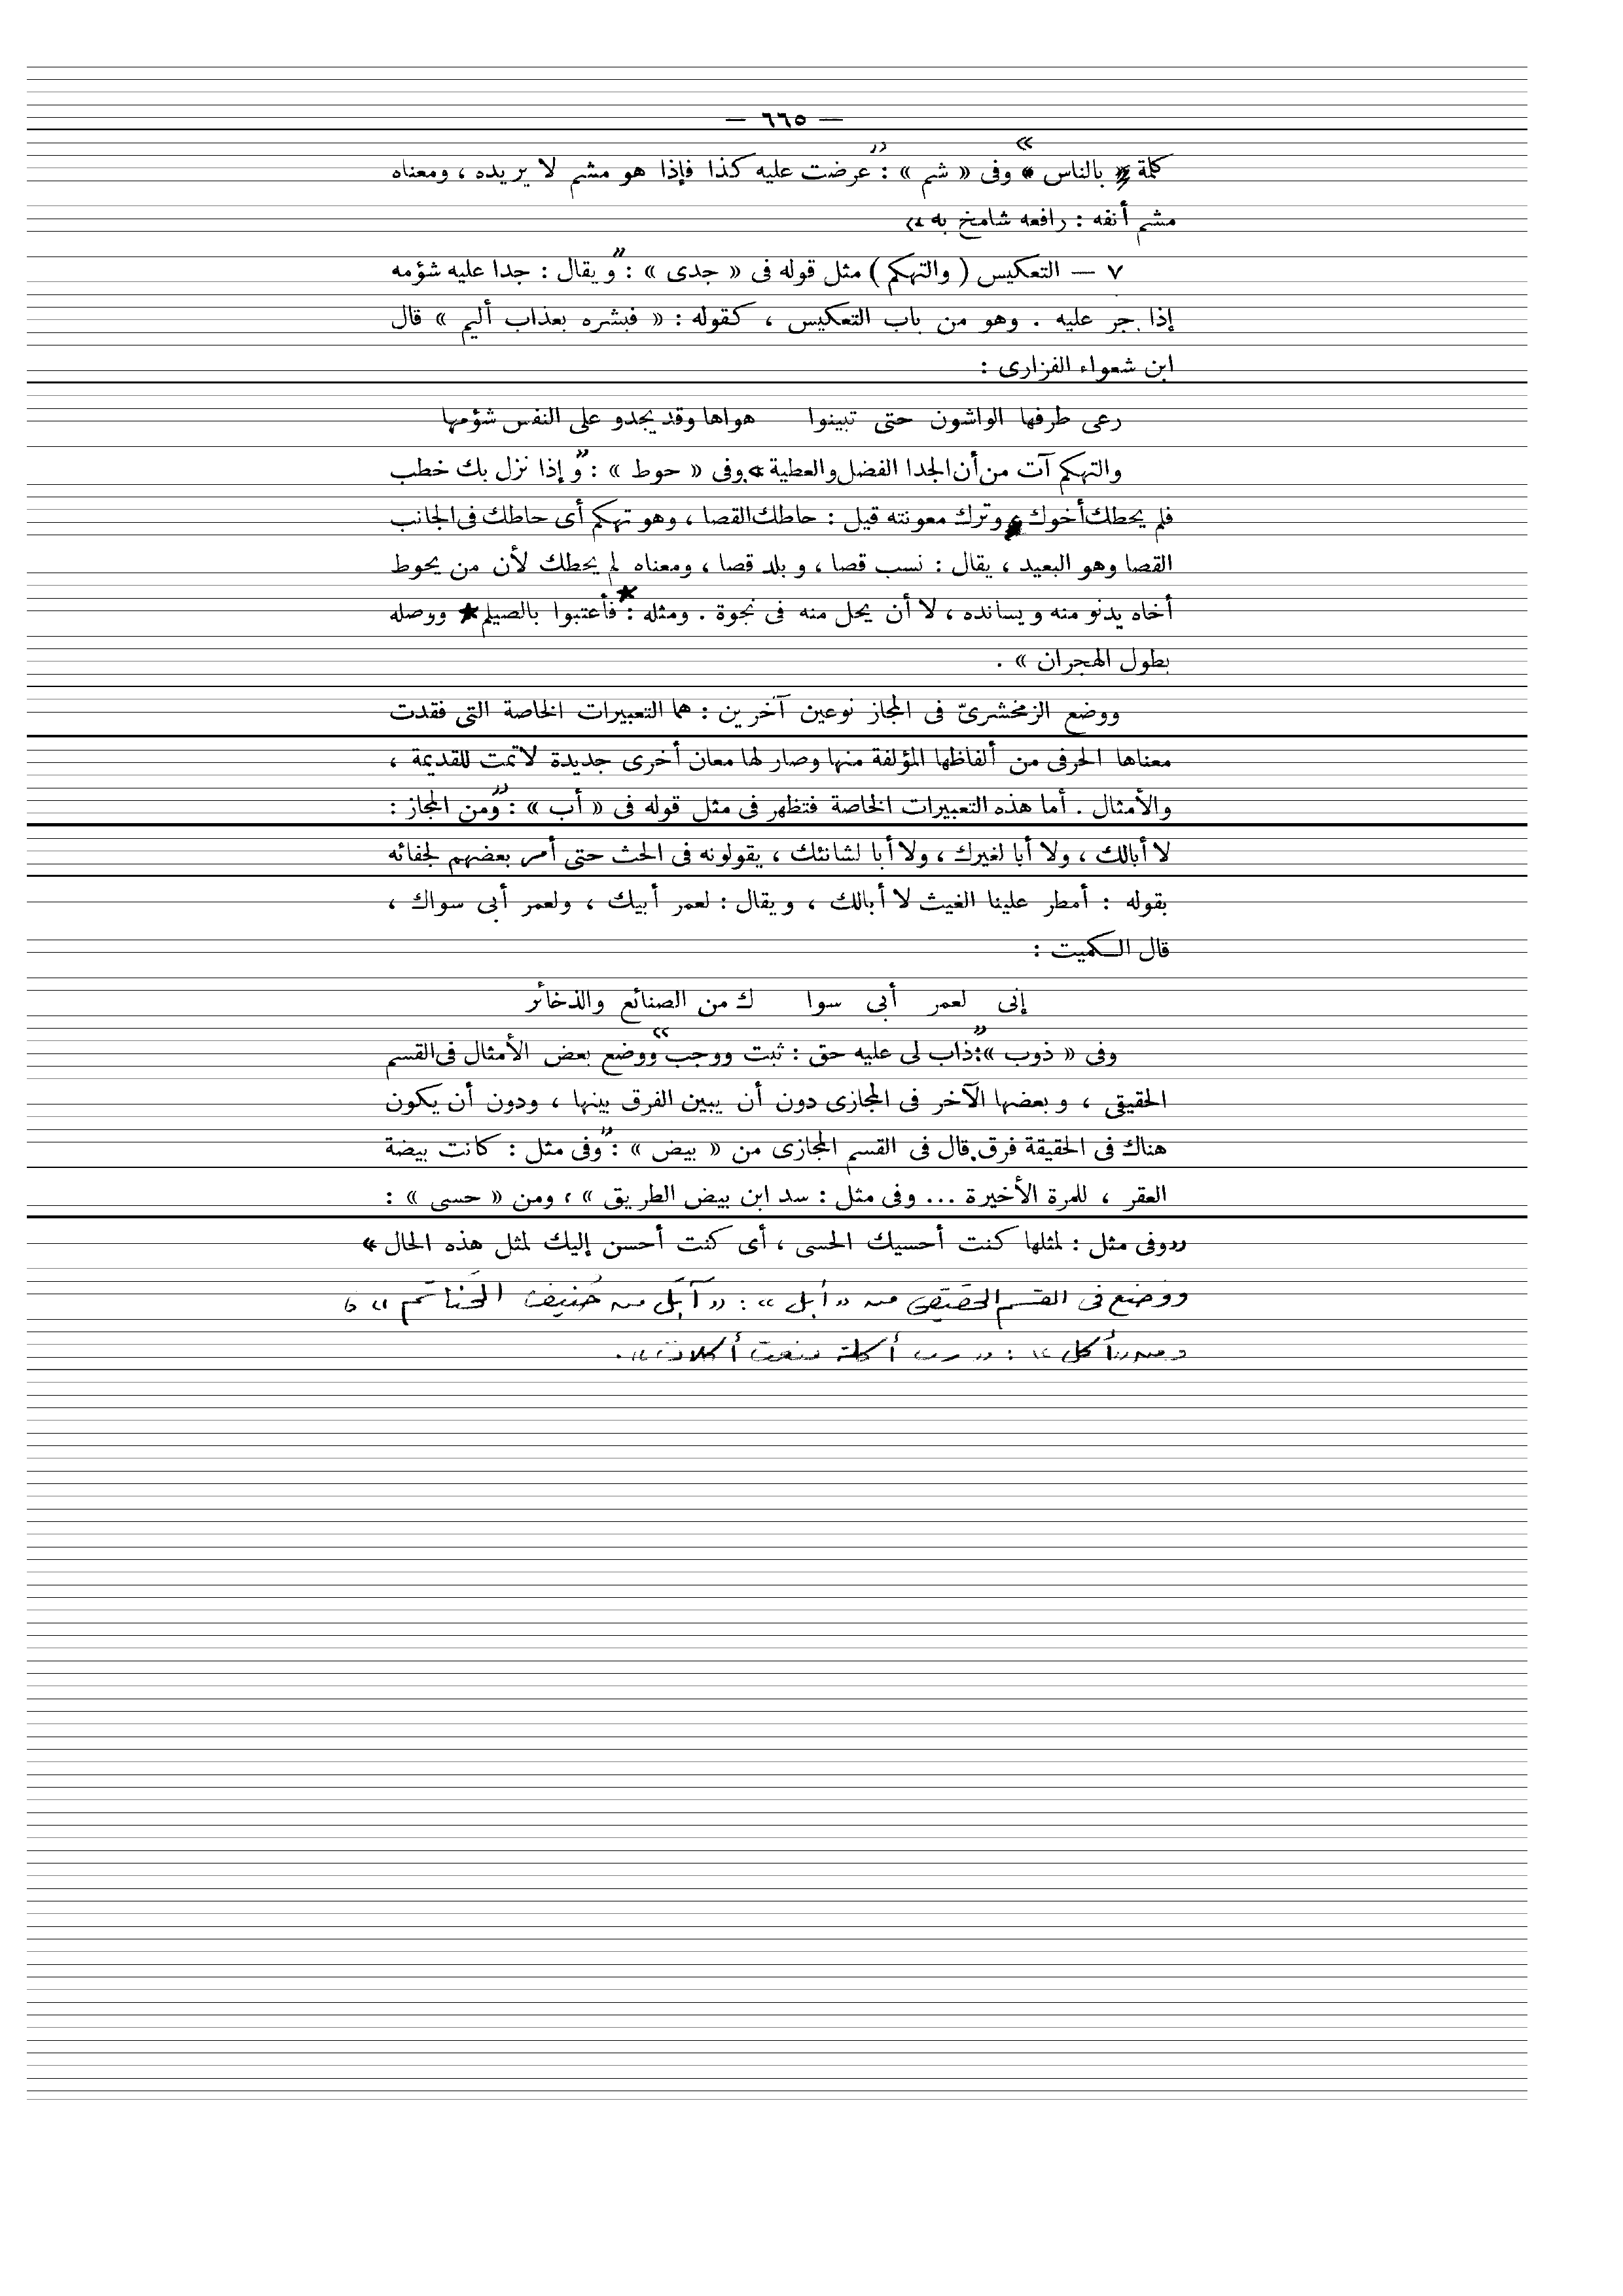 — ٦٦٥ —
كلمة بالناس » وفى « شم » : « عرضت عليه كذا فإذا هو مشم لا يريده ، ومعناه
مشم أنفه : رافعه شامخ به »
٧ — التعكيس ( والتهكم ) مثل قوله فى « جدى » : « ويقال : جدا عليه شؤمه
إذا جر عليه . وهو من باب التعكيس ، كقوله : « فبشره بعذاب أليم » قال
ابن شعواء الفزارى :
رعى طرفها الواشون حتى تبينوا هواها وقد يجدو على النفس شؤمها
والتهكم آت من أن الجدا الفضل والعطية » . وفى « حوط » : « وإذا نزل بك خطب
فلم يحطك أخوك وترك معونته قيل : حاطك القصا ، وهو تهكم أى حاطك فى الجانب
القصا وهو البعيد ، يقال : نسب قصا ، وبلد قصا ، ومعناه لم يحطك لأن من يحوط
أخاه يدنو منه ويسانده ، لا أن يحل منه فى نجوة . ومثله : * فأعتبوا بالصيلم * ووصله
بطول الهجران » .
ووضع الزمخشرىّ فى المجاز نوعين آخرين : هما التعبيرات الخاصة التى فقدت
معناها الحرفى من ألفاظها المؤلفة منها وصار لها معان أخرى جديدة لا تمت للقديمة ،
والأمثال . أما هذه التعبيرات الخاصة فتظهر فى مثل قوله فى « أب » : « ومن المجاز :
لا أبالك ، ولا أبا لغيرك ، ولا أبا لشانئك ، يقولونه فى الحث حتى أمر بعضهم لجفائه
بقوله : أمطر علينا الغيث لا أبالك ، ويقال : لعمر أبيك ، ولعمر أبى سواك ،
قال الكميت :
إنى لعمر أبى سوا ك من الصنائع والذخائر
وفى « ذوب » : « ذاب لى عليه حق : ثبت ووجب » ووضع بعض الأمثال فى القسم
الحقيقى ، وبعضها الآخر فى المجازى دون أن يبين الفرق بينها ، ودون أن يكون
هناك فى الحقيقة فرق . قال فى القسم المجازى من « بيض » : « وفى مثل : كانت بيضة
العقر ، للمرة الأخيرة ... وفى مثل : سد ابن بيض الطريق » ، ومن « حسى » :
« وفى مثل : لمثلها كنت أحسيك الحسى ، أى كنت أحسن إليك لمثل هذه الحال »
ووضع فى القسم الحقيقى من « أبل » : « آبَل من حُنيف الحَناتم » ،
ومن « أكل » : « رب أكلة منعت أكلات » .